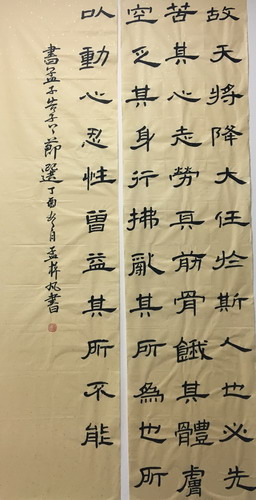 故天將降大任於斯人也必先
苦其心志勞其筋骨餓其體膚
空乏其身行拂亂其所為也所
以動心忍性曾益其所不能
書孟子告子下節選丁酉月孟書